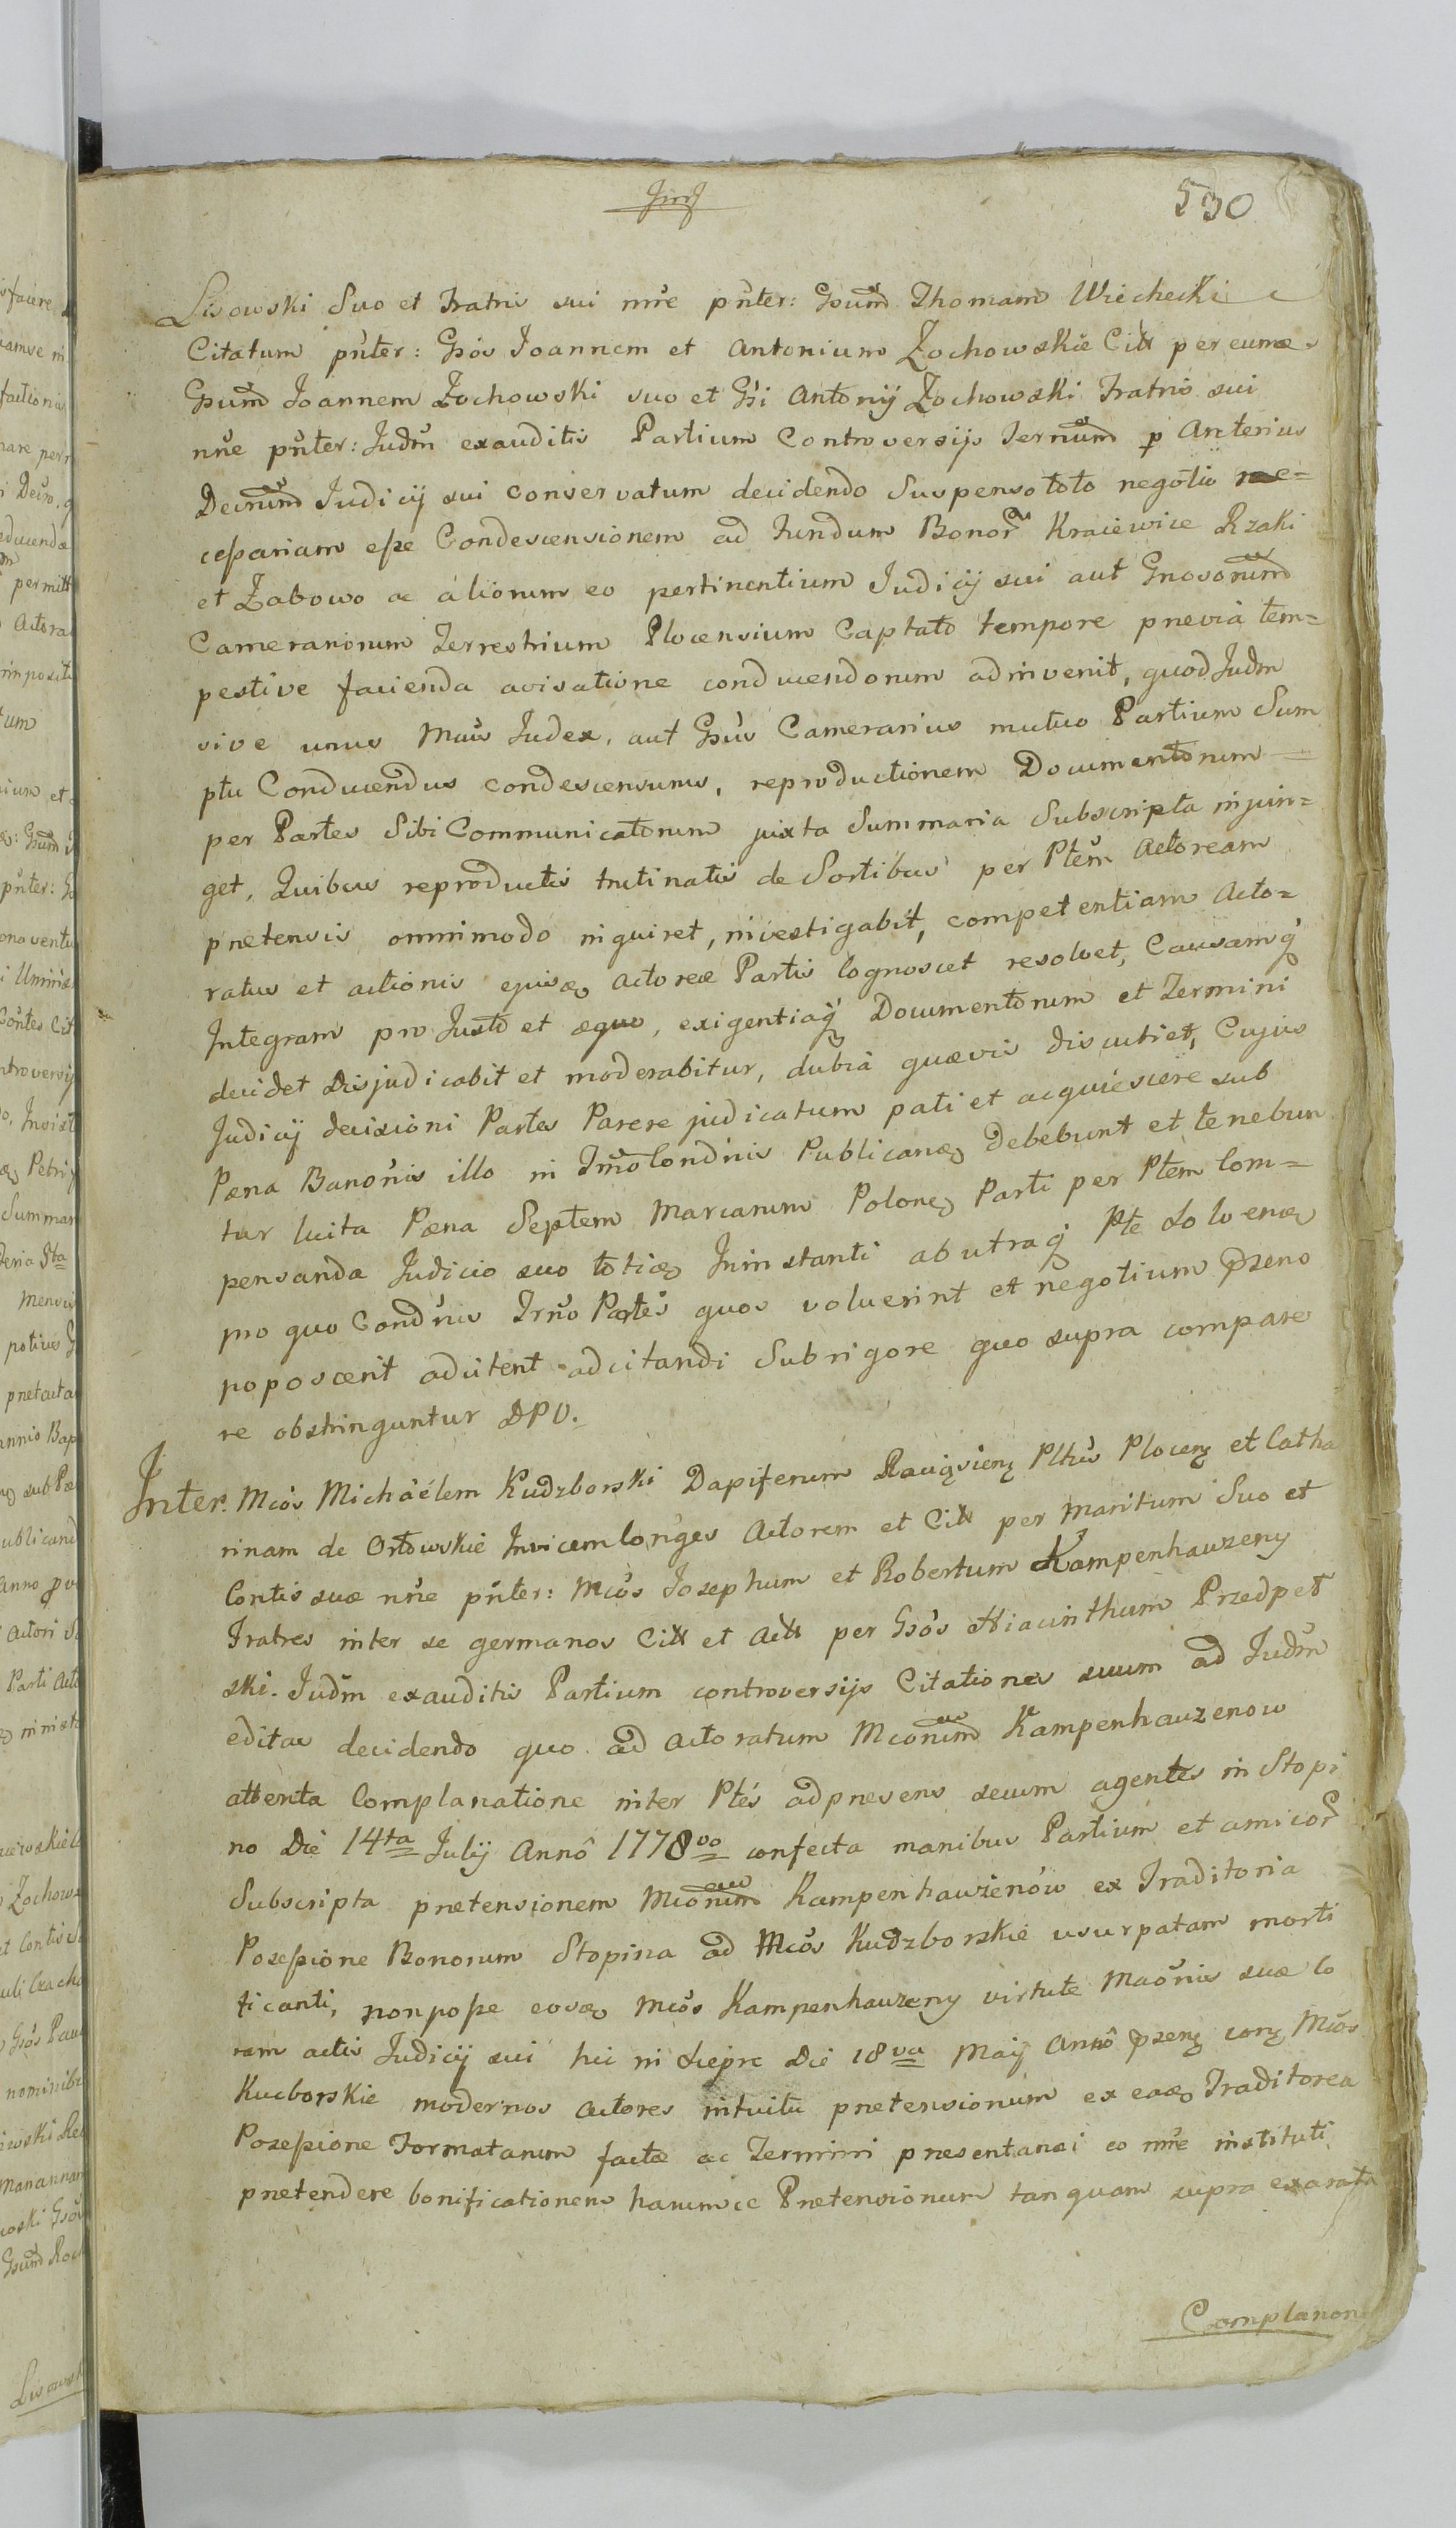 530
Lisowski Suo et Fratris sui nñe pnter: Gsum Thomam Wiechecki
Citatum pnter: Gsos Joannem et Antonium Żochowskie Citt per eume
Gsum Joannem Żochowski suo et Gsi Antonij Żochowski Fratris sui
nñe pnter: Judm exauditis Partium Controversijs Ternum p Anterius
Decrum Judicij sui conservatum decidendo Suspenso toto negotio ne=
cessariam esse Condescensionem ad Fundum Bonor Kraiewice Rzaki
et Żabowo ac aliorum eo pertinentium Judicij sui aut Gnosorum
Camerariorum Terrestrium Plocensium Captato tempore previa tem=
pestive facienda avisatione conducendorum adinvenit, quod Judm
sive unus Mcus Judex, aut Gsus Camerarius mutuo Partium Sum
ptu Conducendus condescensurus, reproductionem Documentorum
per Partes Sibi Communicatorum juxta Summaria Subscripta injun=
get, Quibus reproductis trutinatis de Sortibus per Ptem Actoream
pretensis omnimodo inquiret, investigabit, competentiam Acto=
ratus et actionis ejusq Actoreæ Partis Cognoscet resolvet, Causamq
Integram pro Justo et æquo, exigentiaq Documentorum et Termini
decidet Disjudicabit et moderabitur, dubia quævis discutiet, Cujus
Judicij decisioni Partes Parere judicatum pati et acquiescere sub
Pæna Banonis illo in Tmo Condnis Publicanæ Debebunt et tenebun
tur lucita Pæna Septem Marcarum Polone Parti per Ptem Com=
pensanda Judicio suo toties Ininstanti ab utraq Pte Solvenæ
pro quo Condnis Trno Partes quos voluerint et negotium przeno
poposcerit adcitent adcitandi Sub rigore quo supra compare
re obstringuntur DPV.
Inter Mcos Michaélem Kudzborski Dapiferum Racięsien Pltus Plocen et Catha
rinam de Orłowskie Invicem Conges Actorem et Citt per Maritum Suo et
Contis suæ nñe pnter: Mcos Josephum et Robertum Kampenhauzeny
Fratres inter se germanos Citt et Actt per Gsos Hiacinthum Przedpeł
ski. Judm exauditis Partium controversijs Citationes suum ad Judm
editas decidendo quo ad Actoratum Mcorum Kampenhauzenow
attenta Complanatione inter Ptes ad presens secum agentes in Stopi
no Die 14ta Julij Annô 1778vo confecta manibus Partium et amicor
Subscripta pretensionem Mcorum Kampenhauzenów ex Traditoria
Possessione Bonorum Stopina ad Mcos Kudzborskie usurpatam morti
ficanti, non posse eosq Mcos Kampenhauzeny virtute Maonis suæ Co
ram actis Judicij sui hic in Sieprc Die 18va Maij Annô przen con Mcos
Kucborskie modernos Actores intuitu pretensionum ex eaq Traditorea
Possessione Formatarum factæ ac Termini presentanei eo nñe instituti
pretendere bonificationem harumce Pretensionum tanquam supra exarata
Complanone